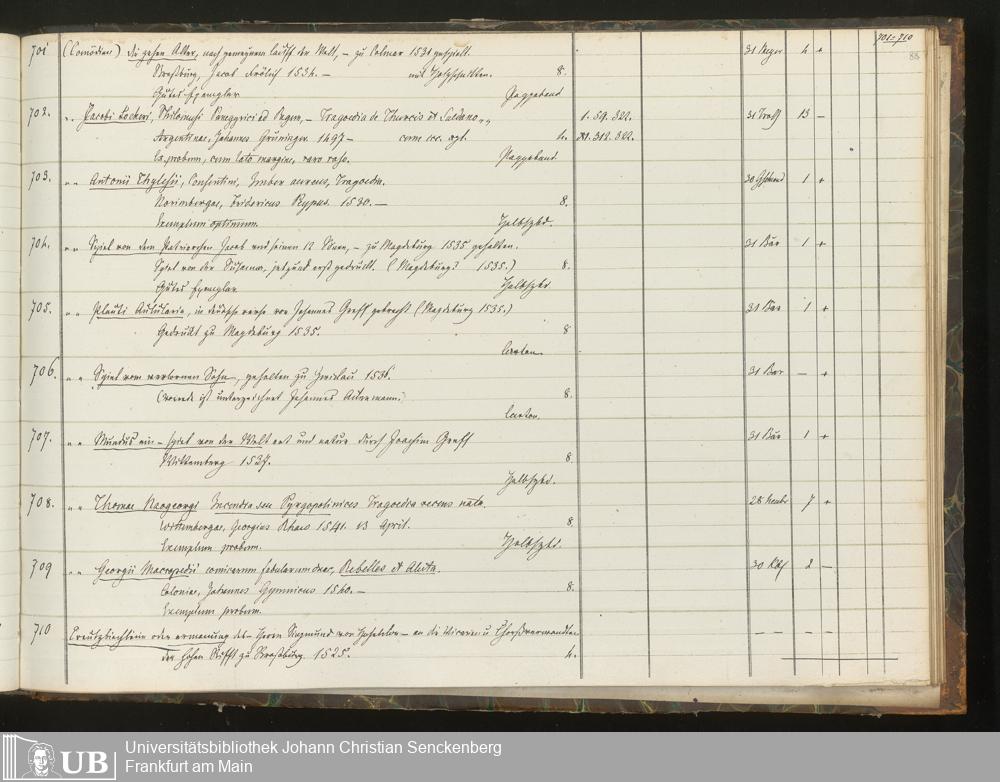 701-710
88
701 (Comödien) die zehen Alter, nach gemeynem lauff der Welt, – zu Colmar 1531 gespielt. 31 4 +
Straßburg, Jacob Frölich 1534. – mit Holzschnitten. 8.
Gutes Exemplar Pappeband
702. „ Jacobi Locheri, Philomusi Panegyrici ad Regem, – Tragoedia de Thurcis et Suldano „ 1. 59. 322. 31 13 –
Argentinae, Johannes Grüninger 1497 – cum icc. xyl. 4. 312. 322.
Ex. probum, cum lato margine, raro raso. Pappeband
703. „ „ Antonii Thylesii, Consentini, Imber aureus, Tragoedia. 30 1 +
Norimbergae, Fridericus Peypus. 1530. – 8.
Exemplum optimum. Halbfzbd.
704. „ „ Spiel von dem Patriarchen Jacob und seinen 12 Sönen, – zu Magdeburg 1535 gehalten. 31 Bär 1 +
Spiel von der Susanna, jetzund erst gedruckt. (Magdeburg? 1535.) 8.
Gutes Exemplar Halbfzbd.
705. „ „ Plauti Aulularia, in deutsche verse von Johannes Greff gebracht (Magdeburg 1535.) 31 Bär 1 +
Gedruckt zu Magdeburg 1535. 8
Carton.
706. „ „ Spiel vom verlornen Sohn, gehalten zu Zwickau 1536. 31 Bär – +
(vorrede ist unterzeichnet Johannes Ackermann.) 8.
Carton.
707. „ „ Mundus ein – spiel von der Welt art und natur durch Joachim Greff 31 Bär 1 +
Wittemberg 1537. 8.
Halbfzbd.
708. „ „ Thomae Naogeorgi Incendia seu Pyrgopolinices Tragoedia recens nata. 28 7 +
Wittembergae, Georgius Rhaw 1541. 13 April. 8.
Exemplum probum. Halbfzbd.
709 „ „ Georgii Macropedii comicarum fabularum duae, Rebelles et Aluta. 30 2 –
Coloniae, Johannes Gymnicus 1540. – 8.
Exemplum probum.
710 Creutzbüchlein oder ermanung des Herrn Sigmund von Hohenloe – an die Vicarien u. Chorßverwandten – – – –
der hohen Stifft zu Straßburg. 1525. 4.
UB
Universitätsbibliothek Johann Christian Senckenberg
Frankfurt am Main